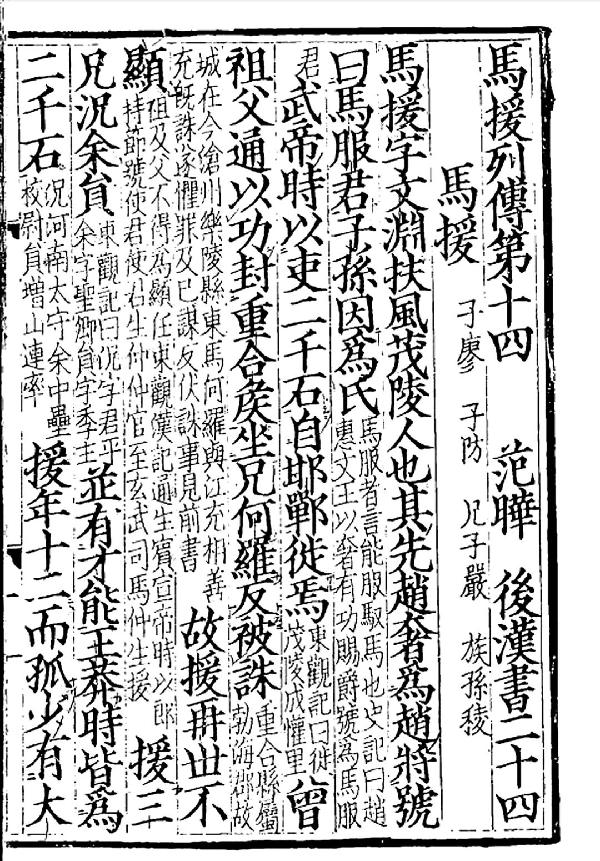 馬援列傳第十四 范曄 後漢書二十四
馬援 子廖 子防 兄子嚴 族孫稜
馬援字文淵扶風茂陵人也其先趙奢爲趙將號
曰馬服君子孫因爲氏馬服者言能服馭馬也史記曰趙惠文王以奢有功賜爵號爲馬服
君武帝時以吏二千石自邯鄲徙焉東觀記曰徙茂陵成懽里曾
祖父通以功封重合侯坐兄何羅反被誅重合縣屬勃海郡故
城在今滄州樂陵縣東馬何羅與江充相善充既誅遂懼罪及已謀反伏誅事見前書故援再世不
顯祖及父不得為顯任東觀漢記通生賓宣帝時以郎持節號使君使君生仲仲官至玄武司馬仲生援援三
兄況余員東觀記曰況字君平余字聖卿員字季主並有才能王莽時皆爲
二千石況河南太守余中壘校尉員增山連率援年十二而孤少有大